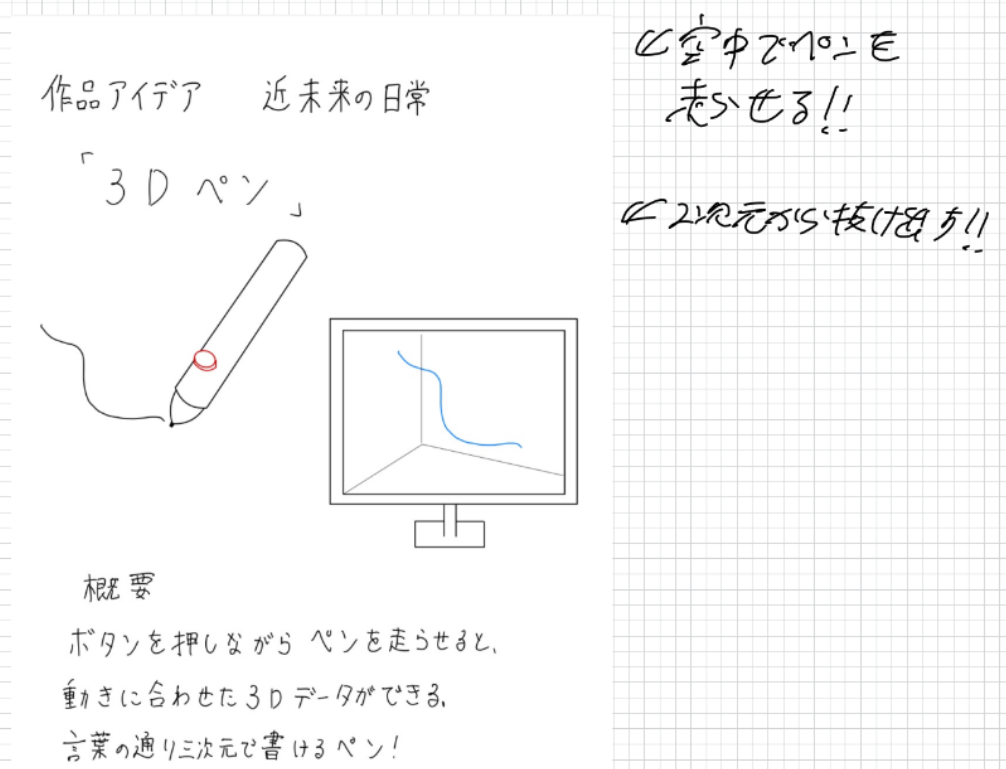 作品アイデア 近未来の日常
「3Dペン」
概要
ボタンを押しながら ペンを走らせると、
動きに合わせた3Dデータができる。
言葉の通り三次元で書けるペン!
←空中でペンを
走らせる!!
←2次元から抜け出す!!